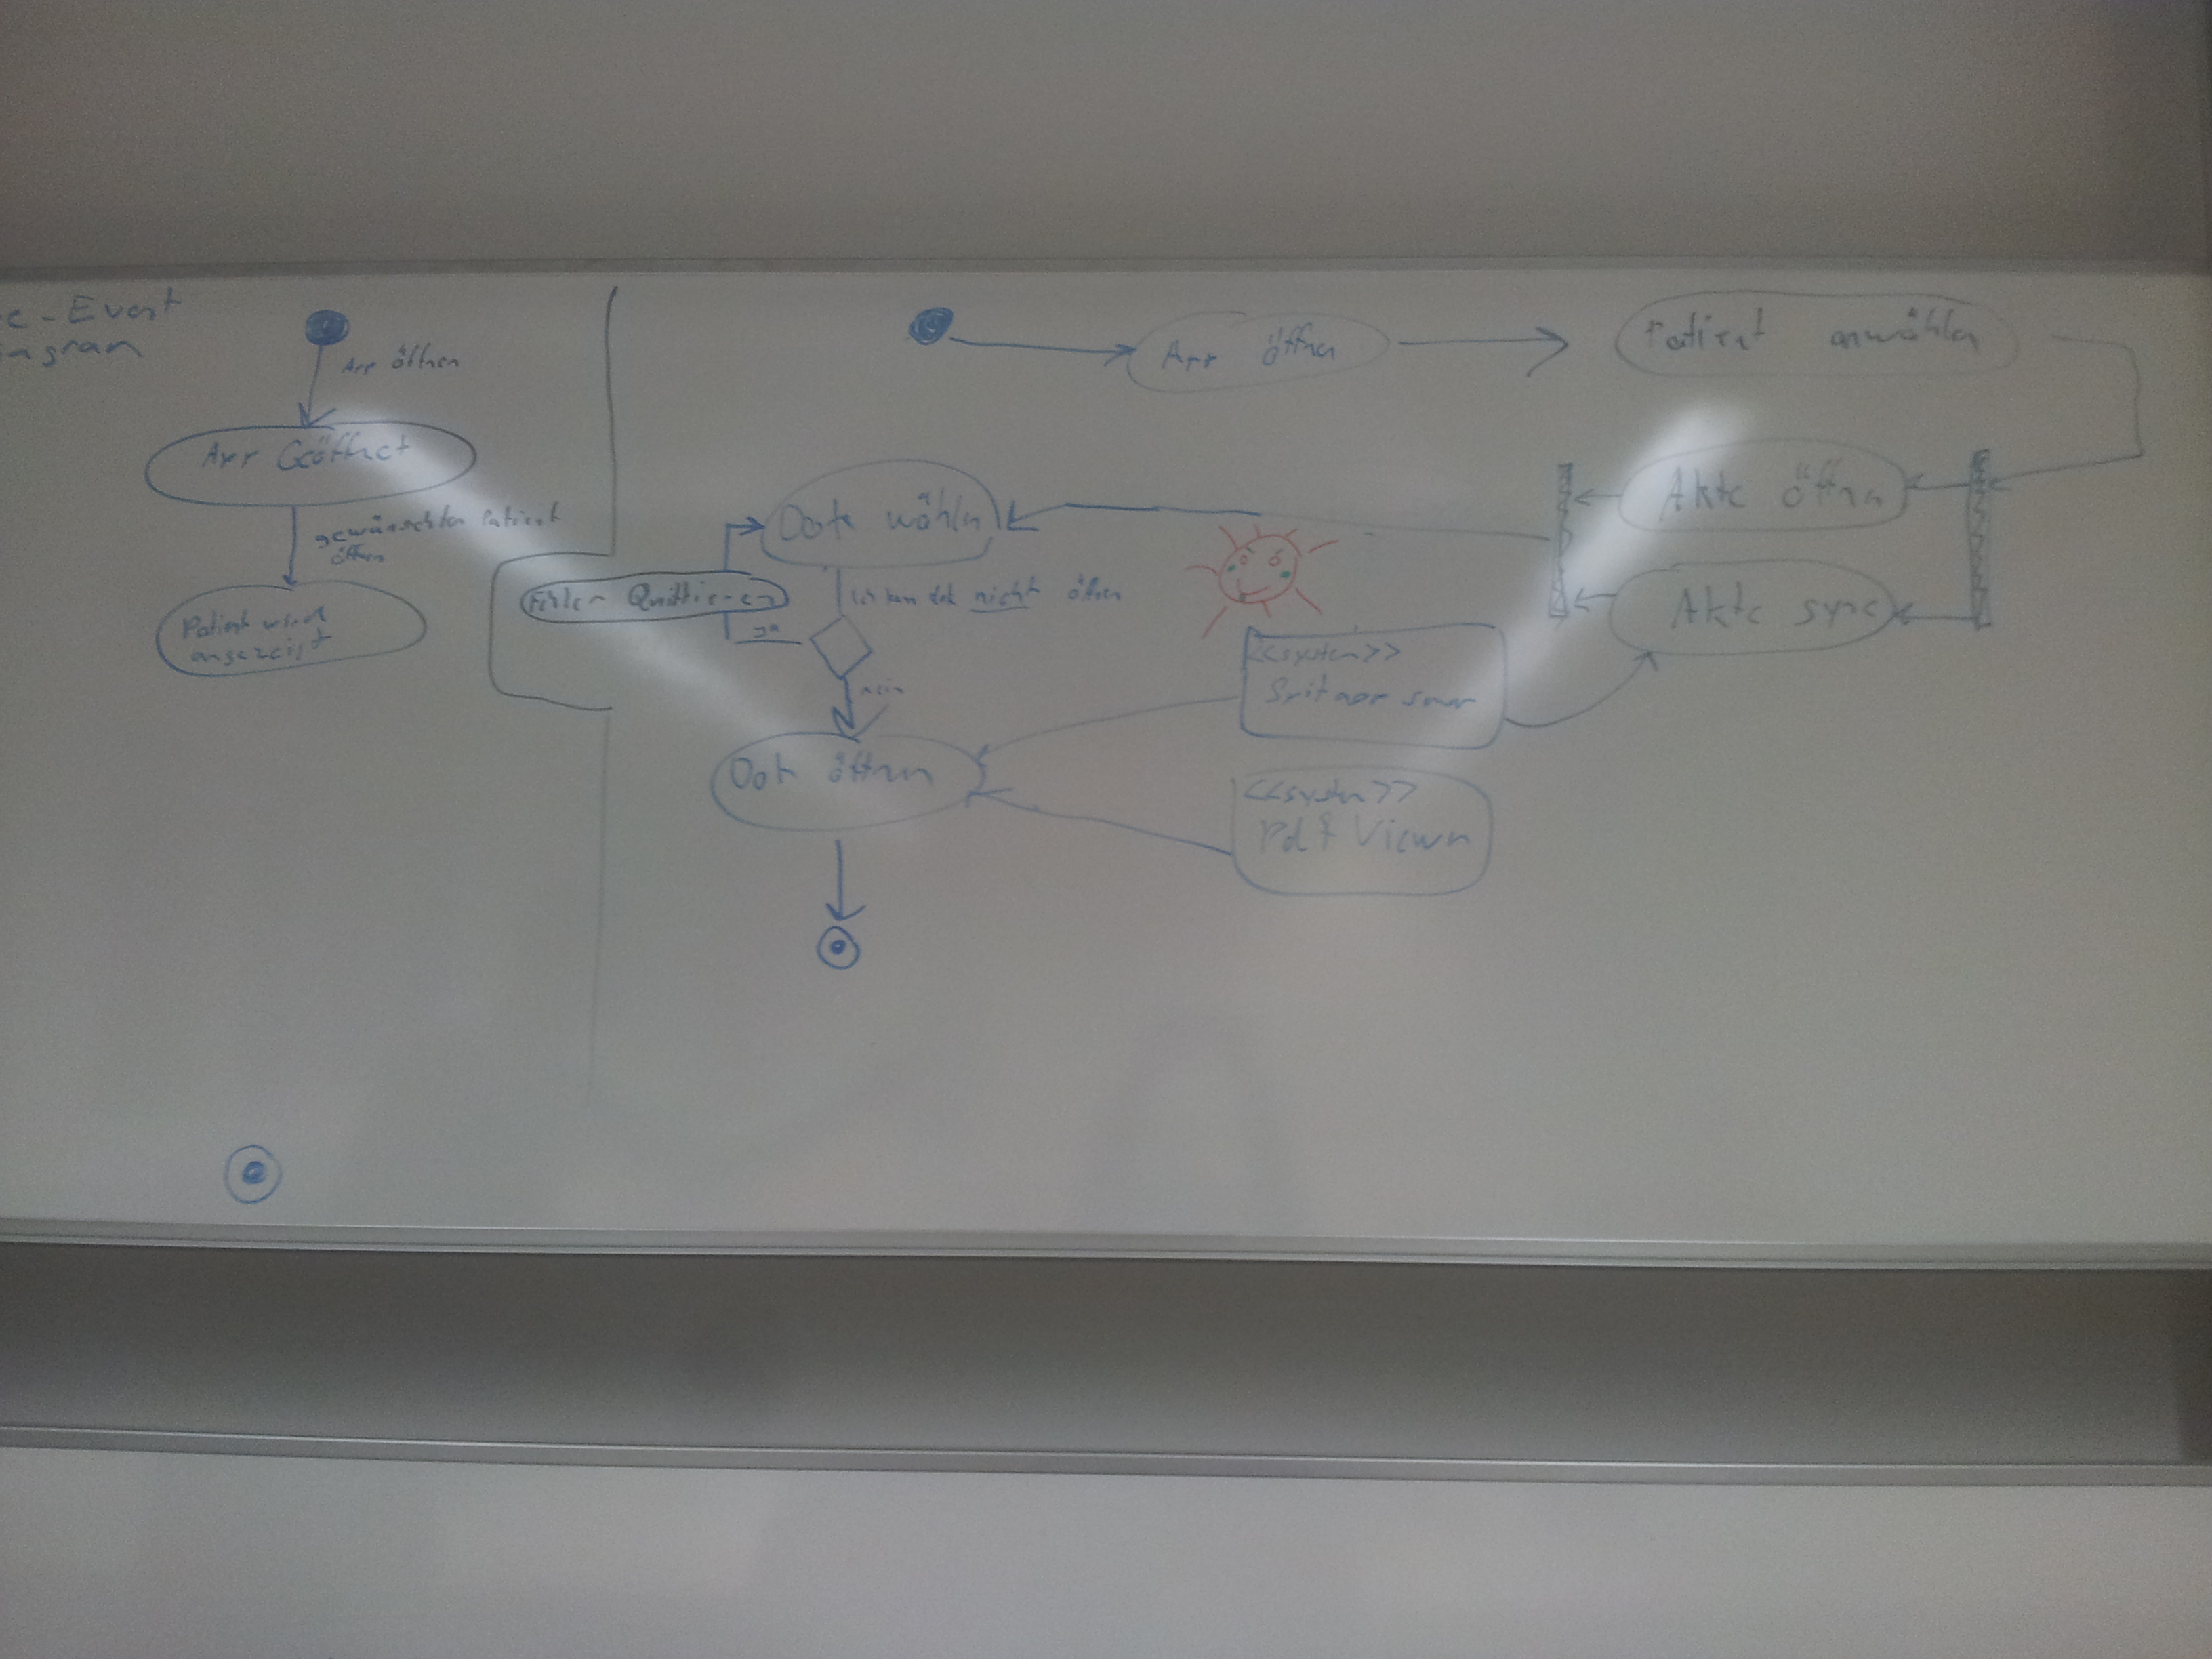 e-Event
agram
App öffnen
App Geöffnet
gewünschten Patient
öffnen
Patient wird
angezeigt
App öffnen
Patient anwählen
Akte öffnen
Akte sync
Dok wählen
Fehler Quittieren
ich kann dok nicht öffnen
ja
nein
Dok öffnen
<<system>>
<<system>>
Pdf Viewer